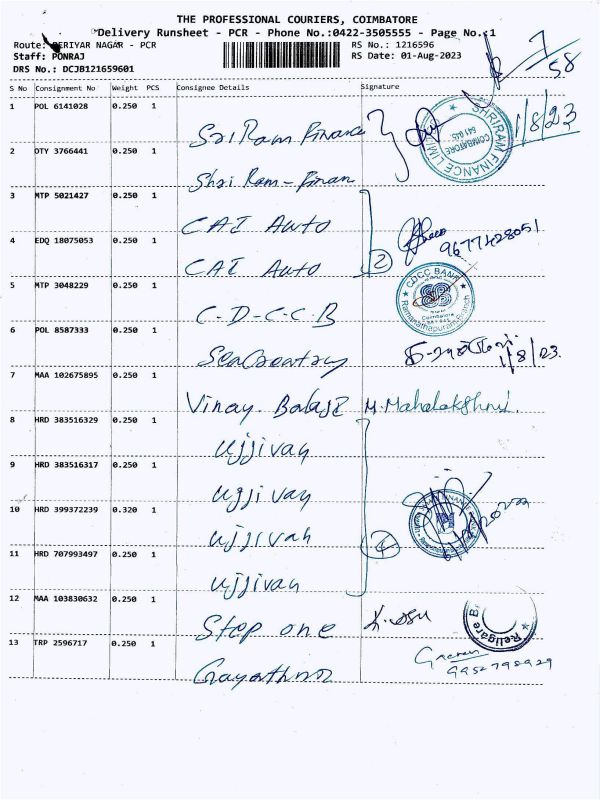 THE PROFESSIONAL COURIERS, COIMBATORE
Delivery Runsheet - PCR - Phone No.:0422-3505555 - Page No.:1
Route: PERIYAR NAGAR - PCR
RS No.: 1216596
Staff: PONRAJ
RS Date: 01-Aug-2023
DRS No.: DCJB121659601
S No Consignment No Weight PCS Consignee Details Signature
1 POL 6141028 0.250 1 Sri Ram Finance
1/8/23
SHRIRAM FINANCE LIMITED
COIMBATORE 641 045
2 DTY 3766441 0.250 1 Shri Ram-Finan
3 MTP 5021427 0.250 1 CAI Auto
4 EDQ 18075053 0.250 1 CAI Auto
2
9677428051
5 MTP 3048229 0.250 1 C-D-C-C B
CDCC BANK
Ramanathapuram Branch
6 POL 8587333 0.250 1
1/8/23.
7 MAA 102675895 0.250 1 Vinay. Balaji M. Mahalakshmi.
8 HRD 383516329 0.250 1 Ujjivan
9 HRD 383516317 0.250 1 Ujjivan
10 HRD 399372239 0.320 1 Ujjivan
4
11 HRD 707993497 0.250 1 Ujjivan
12 MAA 103830632 0.250 1 Step one
Religare
13 TRP 2596717 0.250 1
9952798929